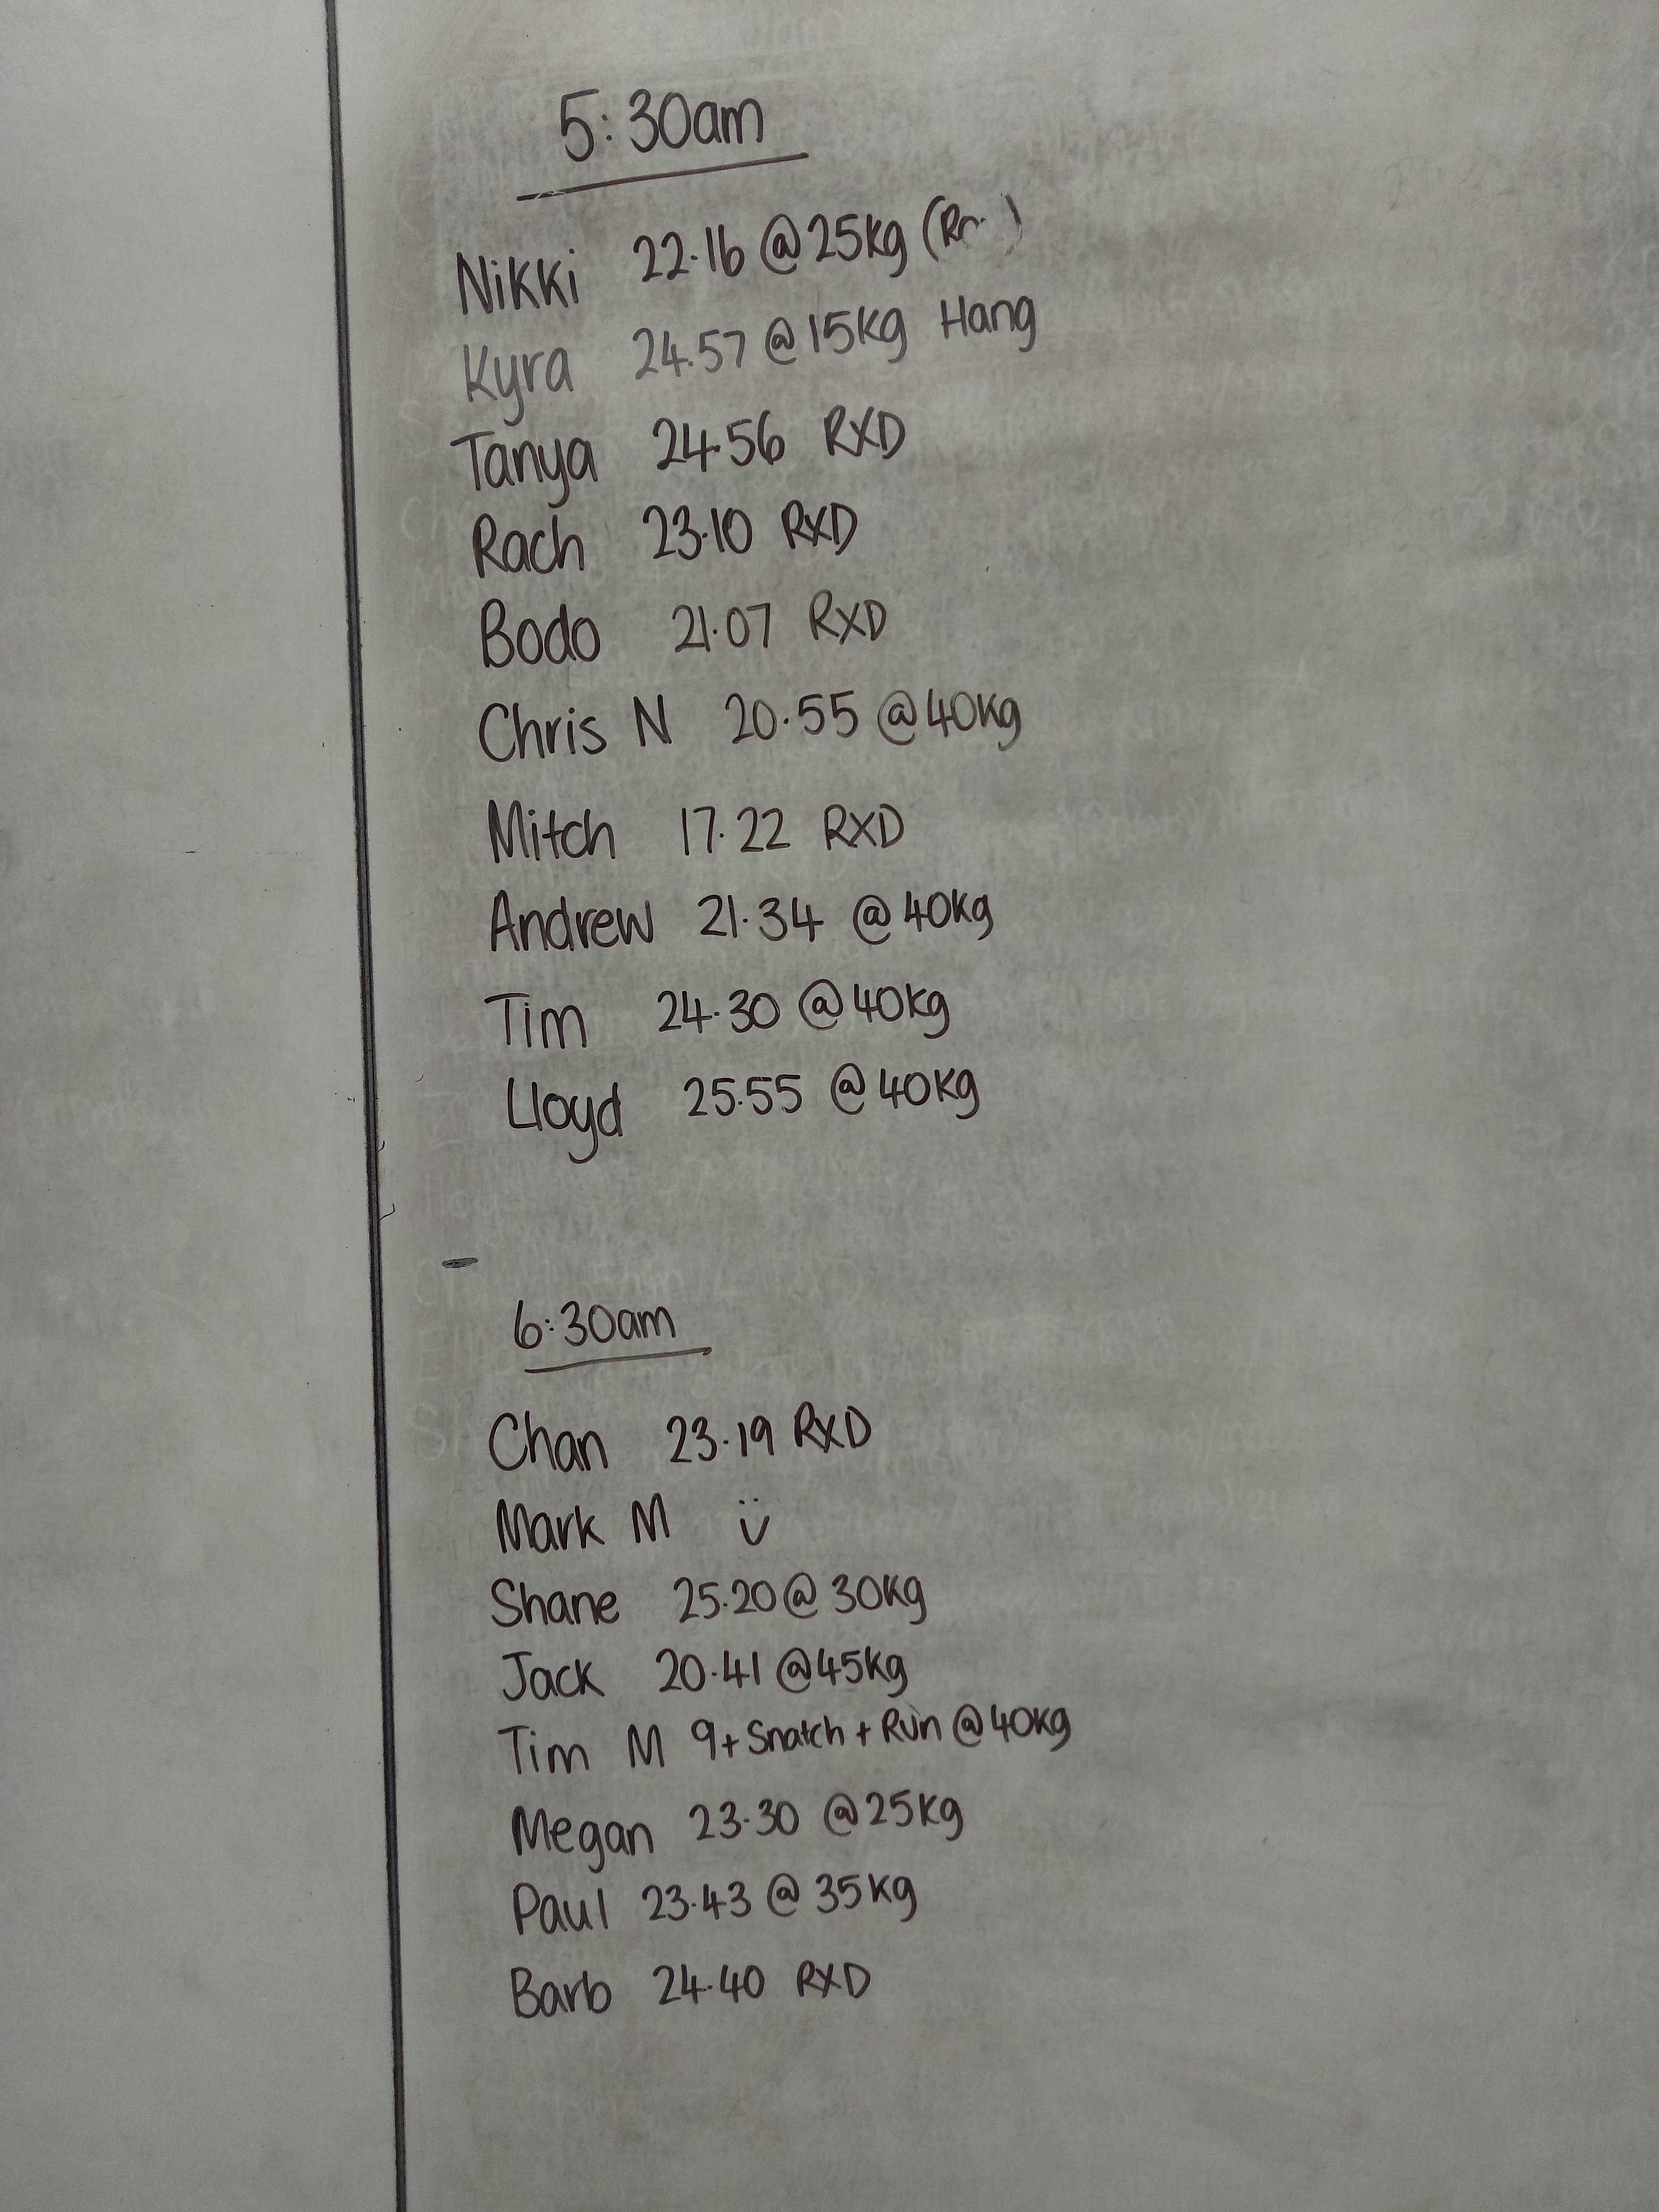 5:30am
Nikki 22.16 @25kg
Kyra 24.57 @15kg Hang
Tanya 24.56 RXD
Rach 23.10 RXD
Bodo 21.07 RXD
Chris N 20.55 @40kg
Mitch 17.22 RXD
Andrew 21.34 @40kg
Tim 24.30 @40kg
Lloyd 25.55 @40kg
6:30am
Chan 23.19 RXD
Mark M
Shane 25.20 @ 30kg
Jack 20.41 @45kg
Tim M 9+ Snatch + Run @40kg
Megan 23.30 @25kg
Paul 23.43 @ 35kg
Barb 24.40 RXD